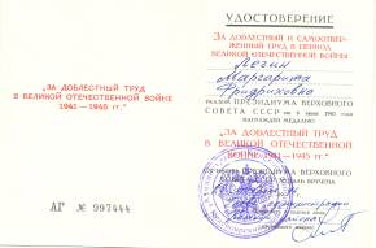 "ЗА ДОБЛЕСТНЫЙ ТРУД
В ВЕЛИКОЙ ОТЕЧЕСТВЕННОЙ ВОЙНЕ
1941—1945 гг."
АГ № 997444
УДОСТОВЕРЕНИЕ
ЗА ДОБЛЕСТНЫЙ И САМООТВЕР-
ЖЕННЫЙ ТРУД В ПЕРИОД
ВЕЛИКОЙ ОТЕЧЕСТВЕННОЙ ВОЙНЫ
Маргарита
Фридриховна
УКАЗОМ ПРЕЗИДИУМА ВЕРХОВНОГО
СОВЕТА СССР от 6 июня 1945 года
НАГРАЖДЕН МЕДАЛЬЮ
"ЗА ДОБЛЕСТНЫЙ ТРУД
В ВЕЛИКОЙ ОТЕЧЕСТВЕННОЙ
ВОЙНЕ 1941—1945 гг."
ПРЕЗИДИУМА ВЕРХОВНОГО
МЕДАЛЬ ВРУЧЕНА